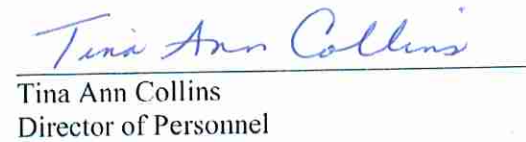 Tina Ann Collins
Tina Ann Collins
Director of Personnel